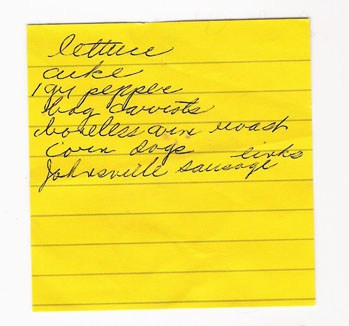 lettuce
cuke
1 gr pepper
bag carrots
boneless arm roast
corn dogs
Johnsville sausage links